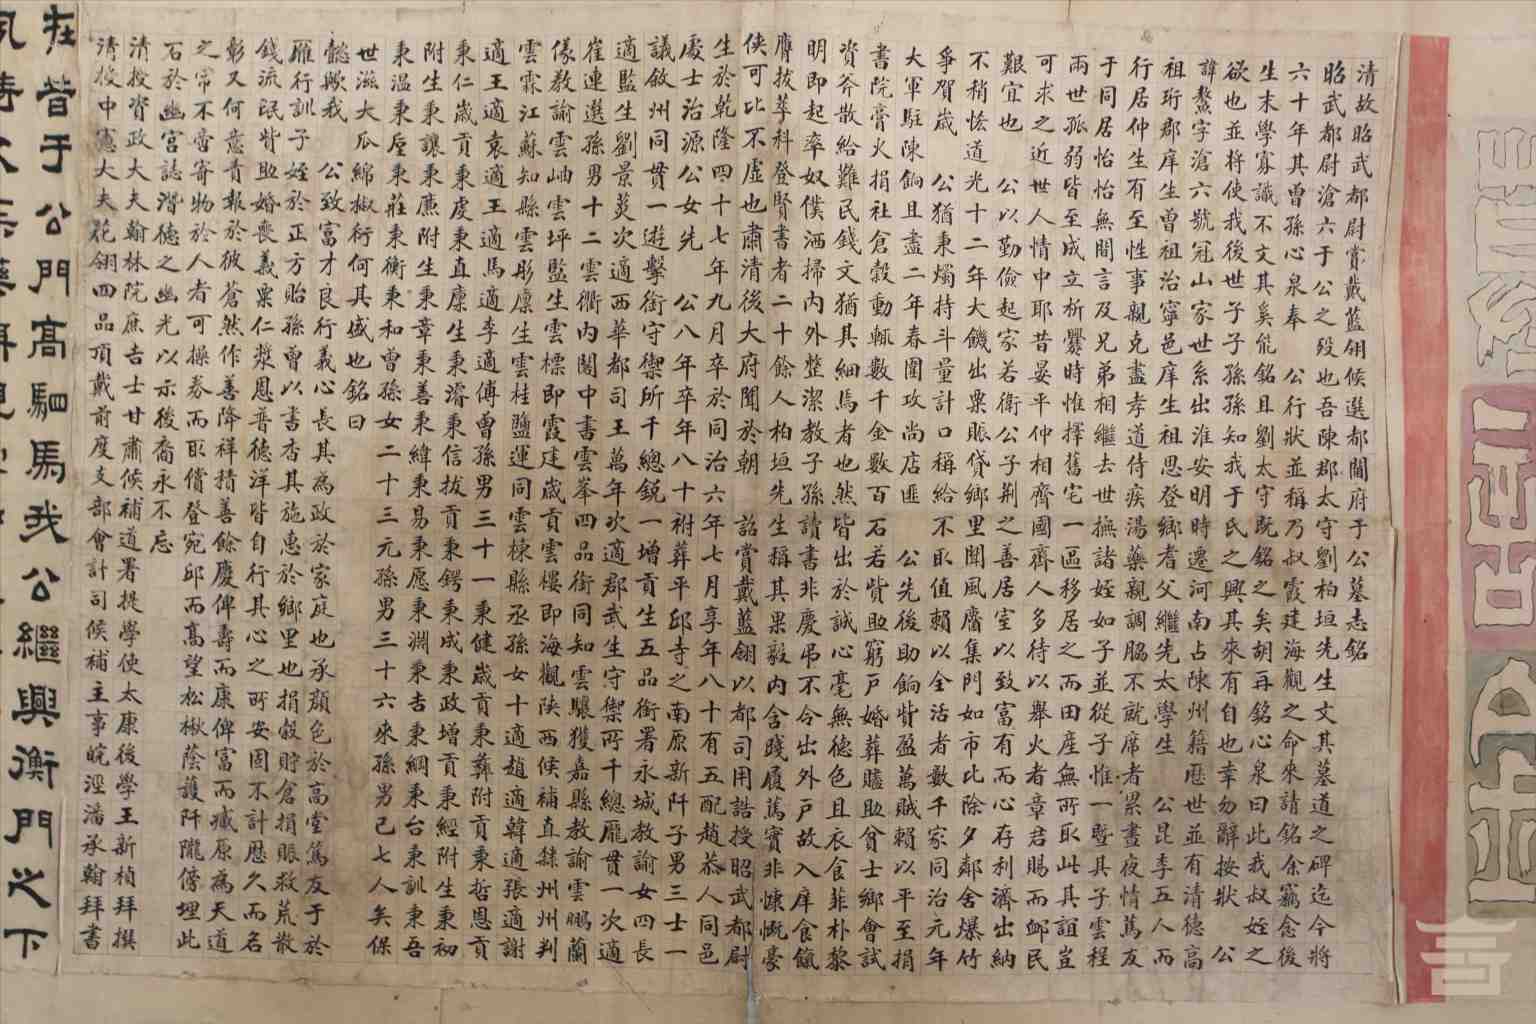 清故昭武都尉賞戴藍翎候選都閫府于公墓志銘
昭武都尉滄六于公之歿也吾陳郡太守劉柏垣先生文其墓道之碑迄今將
六十年其曾孫心泉奉公行狀並稱乃叔霞建海觀之命來請銘余竊念後
生末學寡識不文其奚能銘且劉太守既銘之矣胡再銘心泉曰此我叔姪之
欲也並將使我後世子子孫孫知我于氏之興其來有自也幸勿辭按狀公
諱鰲字滄六號冠山家世系出淮安明時遷河南占陳州籍歷世並有清德高
祖珩郡庠生曾祖治寧邑庠生祖思登鄉耆父繼先太學生公昆季五人而
行居仲生有至性事親克盡孝道侍疾湯藥親調脇不就席者累晝夜情篤友
于同居怡怡無間言及兄弟相繼去世撫諸姪如子並從子惟一暨其子雲程
兩世孤弱皆至成立析爨時惟擇舊宅一區移居之而田產無所取此其誼豈
可求之近世人情中耶昔晏平仲相齊國齊人多待以舉火者章君賜而卹民
艱宜也公以勤儉起家若衛公子荊之善居室以致富有而心存利濟出納
不稍悋道光十二年大饑出粟賑貸鄉里聞風麕集門如市比除夕鄰舍爆竹
爭賀歲公猶秉燭持斗量計口稱給不取值賴以全活者數千家同治元年
大軍駐陳餉且盡二年春圍攻尚店匪公先後助餉貲盈萬賊賴以平至捐
書院膏火捐社倉穀動輒數千金數百石若貲助窮戶婚葬贐助貧士鄉會試
資斧散給難民錢文猶其細焉者也然皆出於誠心毫無德色且衣食菲朴黎
明即起率奴僕洒掃內外整潔教子孫讀書非慶吊不令出外戶故入庠食餼
膺拔萃科登賢書者二十餘人柏垣先生稱其果毅內含踐履篤實非慷慨豪
俠可比不虛也肅清後大府聞於朝詔賞戴藍翎以都司用誥授昭武都尉
生於乾隆四十七年九月卒於同治六年七月享年八十有五配趙恭人同邑
處士治源公女先公八年卒年八十祔葬平邱寺之南原新阡子男三士一
議敘州同貫一遊擊銜守禦所千總銳一增貢生五品銜署永城教諭女四長
適監生劉景炎次適西華都司王萬年次適郡武生守禦所千總龐貫一次適
崔連選孫男十二雲衢內閣中書雲峯四品銜同知雲驤獲嘉縣教諭雲鵬蘭
儀教諭雲岫雲坪監生雲標即霞建歲貢雲樓即海觀陝西候補直隸州州判
雲霖江蘇知縣雲彤廩生雲桂鹽運同雲棟縣丞孫女十適趙適韓適張適謝
適王適袁適王適馬適李適傅曾孫男三十一秉健歲貢秉彝附貢秉哲恩貢
秉仁歲貢秉虔秉直廩生秉濬秉信拔貢秉鍔秉成秉政增貢秉經附生秉初
附生秉讓秉廌附生秉章秉善秉緯秉易秉愿秉淵秉吉秉綱秉台秉訓秉吾
秉溫秉垕秉莊秉衡秉和曾孫女二十三元孫男三十六來孫男已七人矣保
世滋大瓜綿椒衍何其盛也銘曰
懿歟我公致富才良行義心長其為政於家庭也承顏色於高堂篤友于於
雁行訓子姪於正方貽孫曾以書香其施惠於鄉里也捐穀貯倉捐賑救荒散
錢流民皆助婚喪義粟仁漿恩普德洋皆自行其心之所安固不計歷久而名
彰又何意責報於彼蒼然作善降祥積善餘慶俾壽而康俾富而臧原為天道
之常不啻寄物於人者可操券而取償登宛邱而高望松楸蔭護阡隴傍埋此
石於幽宮誌潛德之幽光以示後裔永不忘
清授資政大夫翰林院庶吉士甘肅候補道署提學使太康後學王新楨拜撰
清授中憲大夫花翎四品頂戴前度支部會計司候補主事皖涇潘承翰拜書
在昔于公門高駟馬我公繼興衡門之下